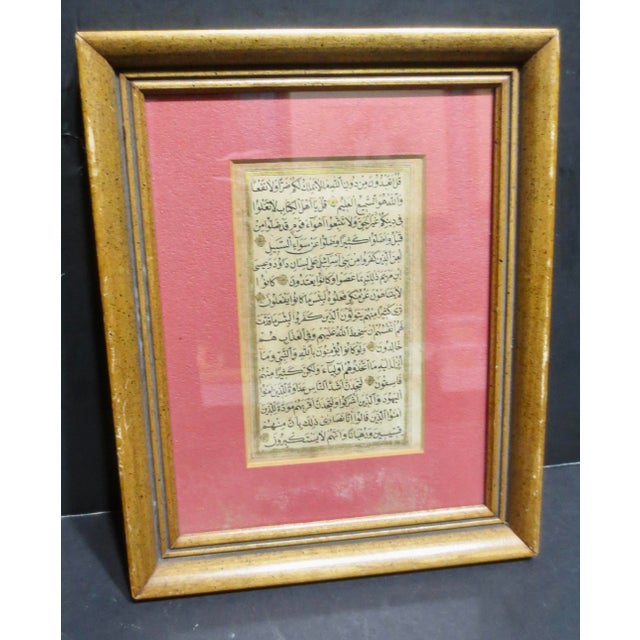 قل أتعبدون من دون الله ما لا يملك لكم ضرا ولا نفعا
والله هو السميع العليم قل يا أهل الكتاب لا تغلوا
في دينكم غير الحق ولا تتبعوا أهواء قوم قد ضلوا من
قبل وأضلوا كثيرا وضلوا عن سواء السبيل
لعن الذين كفروا من بني إسرائيل على لسان داود وعيسى
ابن مريم ذلك بما عصوا وكانوا يعتدون كانوا
لا يتناهون عن منكر فعلوه لبئس ما كانوا يفعلون
ترى كثيرا منهم يتولون الذين كفروا لبئس ما قدمت
لهم أنفسهم أن سخط الله عليهم وفي العذاب هم
خالدون ولو كانوا يؤمنون بالله والنبي وما
أنزل إليه ما اتخذوهم أولياء ولكن كثيرا منهم
فاسقون لتجدن أشد الناس عداوة للذين آمنوا
اليهود والذين أشركوا ولتجدن أقربهم مودة للذين
آمنوا الذين قالوا إنا نصارى ذلك بأن منهم
قسيسين ورهبانا وأنهم لا يستكبرون